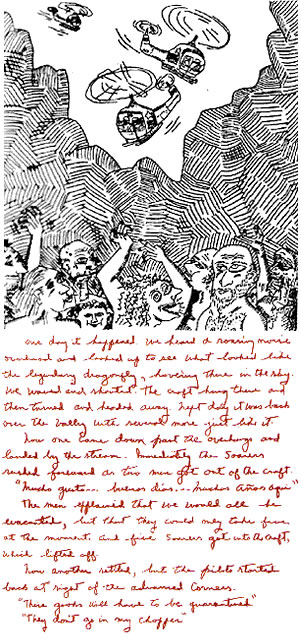 One day it happened. We heard a roaring noise
overhead and looked up to see what looked like
the legendary dragonfly, hovering there in the sky.
We waved and shouted. The craft hung there and
then turned and headed away. Next day it was back
over the valley with several more just like it.
Now one came down past the overhangs and
landed by the stream. Immediately the Sooners
rushed forward as two men got out of the craft.
"Mucho gusto... buenos dias... muchos años aqui"
The men explained that we would all be
evacuated, but that they could only take five
at the moment. And five Sooners got into the craft,
which lifted off.
Now another settled, but the pilots started
back at sight of the advanced Corners.
"These goods will have to be quarantined"
"They don't go in my chopper"